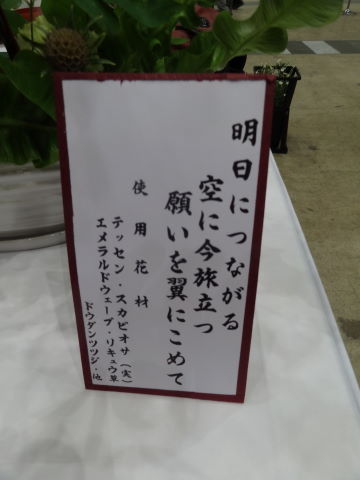 明日につながる
空に今旅立つ
願いを翼にこめて
使用花材
テッセン・スカビオサ(実)
エメラルドウェーブ・リキュウ草
ドウダンツツジ・他